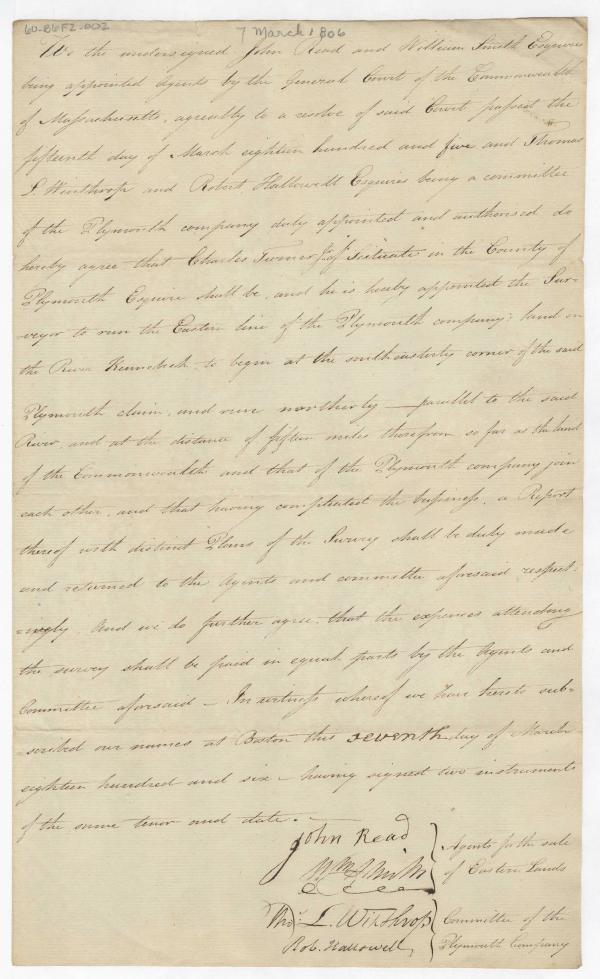 60-B6F2-002
7 March 1806
We the undersigned John Read and William Smith Esquires
being appointed Agents by the General Court of the Commonwealth
of Massachusetts, agreably to a resolve of said Court passed the
fifteenth day of March eighteen hundred and five and Thomas
L. Winthrop and Robert Hallowell Esquires being a committee
of the Plymouth company duly appointed and authorised do
hereby agree that Charles Turner Jr. of Scituate in the County of
Plymouth Esquire shall be, and he is hereby appointed the Sur-
veyor to run the Eastern line of the Plymouth company's land on
the River Kennebeck, to begin at the southeasterly corner of the said
Plymouth claim, and run northerly — parallel to the said
River, and at the distance of fifteen miles therefrom so far as the land
of the Commonwealth and that of the Plymouth company join
each other, and that having compleated the business, a Report
thereof with distinct Plans of the Survey shall be duly made
and returned to the Agents and committee aforesaid respect-
-ively. And we do further agree, that the expenses attending
the survey shall be paid in equal parts by the Agents and
Committee aforesaid — In witness whereof we have hereto sub-
-scribed our names at Boston this seventh day of March
eighteen hundred and six — having signed two instruments
of the same tenor and date. —
John Read
Wm Smith
Agents for the sale
of Eastern Lands
Thos. L. Winthrop
Rob. Hallowell
Committee of the
Plymouth Company